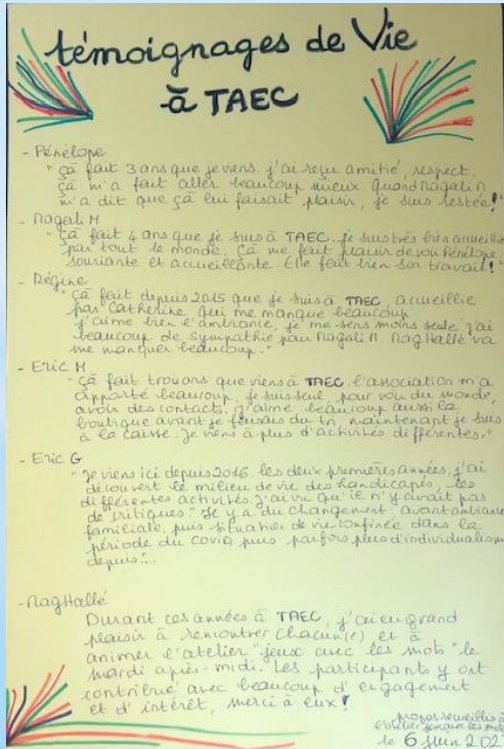 témoignages de Vie
à TAEC
- Pénélope
"çà fait 3 ans que je viens. j'ai reçu amitié, respect.
çà m'a fait aller beaucoup mieux. Quand Magali M
m'a dit que çà lui faisait plaisir, je suis restée!"
- Magali M
"çà fait 4 ans que je suis à TAEC. je suis très bien accueillie
par tout le monde. Çà me fait plaisir de voir Pénélope,
souriante et accueillante. Elle fait bien son travail!"
- Régine
"çà fait depuis 2015 que je suis à TAEC, accueillie
par Catherine qui me manque beaucoup
j'aime bien l'ambiance, je me sens moins seule, j'ai
beaucoup de sympathie pour Magali M. MagHallé va
me manquer beaucoup."
- Eric M
"çà fait trois ans que viens à TAEC. l'association m'a
apporté beaucoup, je suis seul, pour voir du monde,
avoir des contacts. j'aime beaucoup aussi la
boutique avant je faisais du tri maintenant je suis
à la caisse. Je viens à plus d'activités différentes."
- Eric G
"je viens ici depuis 2016. les deux premières années, j'ai
découvert le milieu de vie des handicapés, les
différentes activités. j'ai vu qu'il n'y avait pas
de critiques." Il y a du changement: avant ambiance
familiale, puis situation de vie confinée dans la
période du covid puis parfois plus d'individualisme
depuis...
- MagHallé
Durant ces années à TAEC, j'ai eu grand
plaisir à rencontrer chacun(e) et à
animer l'atelier "jeux avec les mots" le
mardi après-midi. Les participants y ont
contribué avec beaucoup d'engagement
et d'intérêt, merci à eux!
propos recueillis à
l'atelier jeux avec les mots
le 6 juin 202